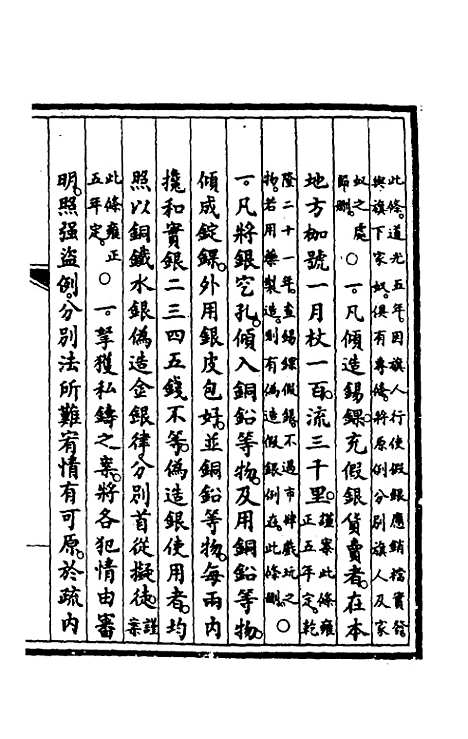 此條道光五年因旗人行使假銀應銷檔實發
與旗下家奴俱有專條將原例分別旗人及家
奴之處
節刪○一凡傾造錫錁充假銀貨賣者在本
地方枷號一月杖一百流三千里謹案此條雍
正五年定乾
隆二十一年查錫錁假錫不過市肆戲玩之
物若用藥製造則有偽造假銀例在此條刪○
一凡將銀穵孔傾入銅鉛等物及用銅鉛等物
傾成錠錁外用銀皮包好並銅鉛等物每兩內
攙和實銀二三四五錢不等偽造銀使用者均
照以銅鐵水銀偽造金銀律分別首從擬徒謹
案
此條雍正
五年定○一拏獲私鑄之案將各犯情由審
明照强盜例分別法所難宥情有可原於疏內